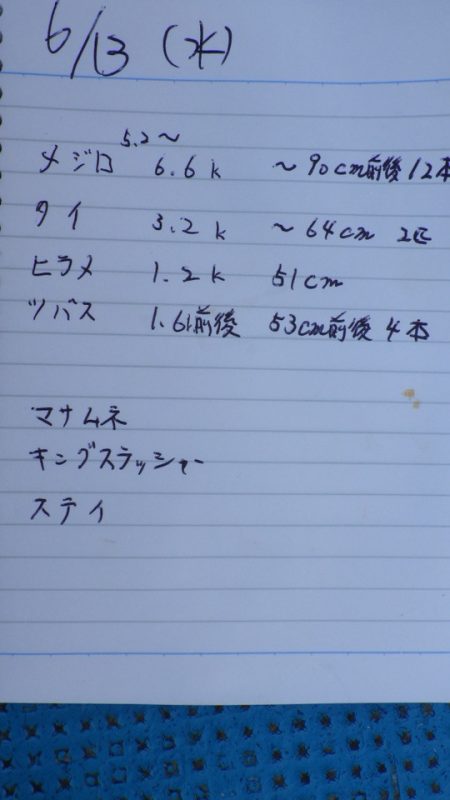 6/13 (水)
5.2〜
メジロ 6.6k 〜90cm前後 12本
タイ 3.2k 〜64cm 2匹
ヒラメ 1.2k 51cm
ツバス 1.61前後 53cm前後 4本
マサムネ
キングスラッシャー
ステイ